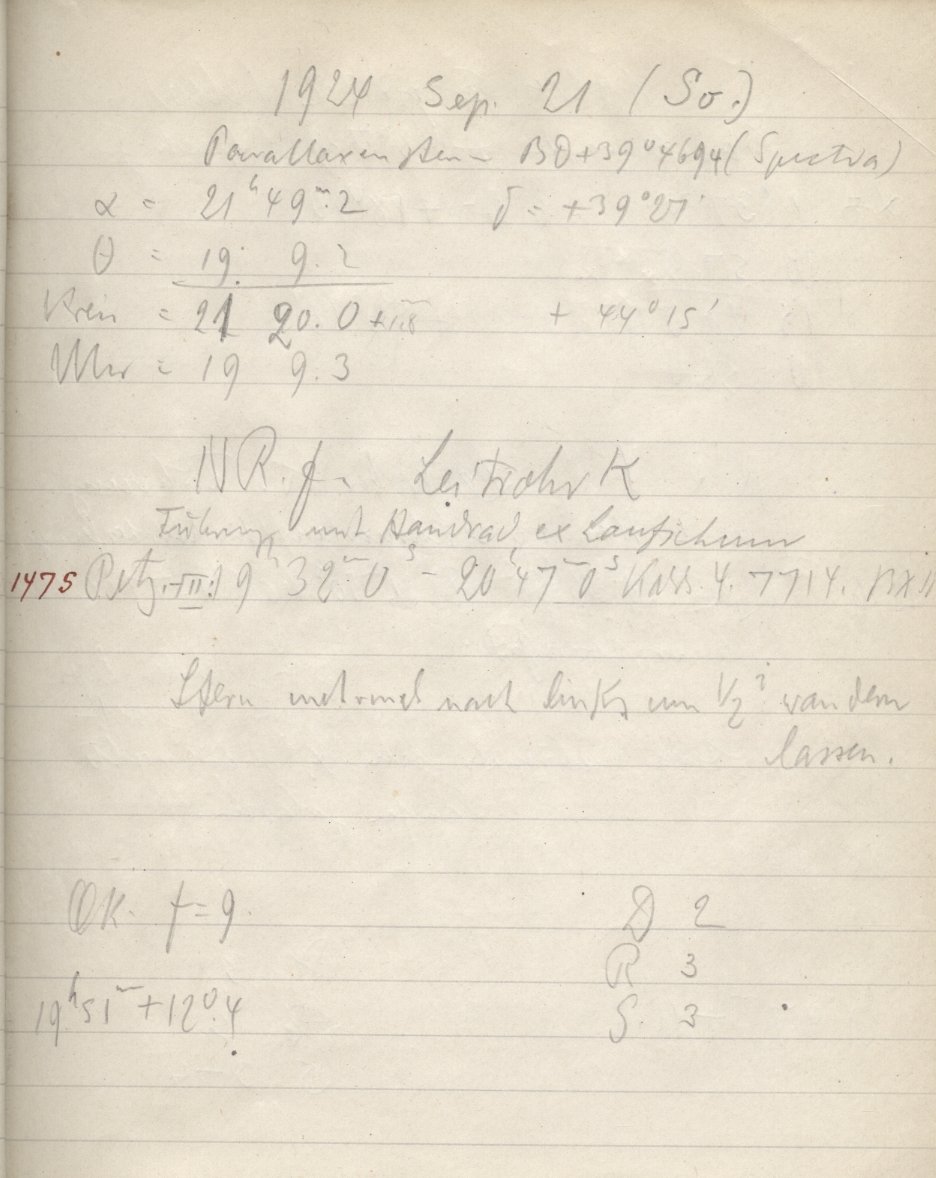 1924 Sep. 21 (So.)
Parallaxenstern BD+39°4694 (Spectra)
α = 21ʰ49ᵐ.2 δ = +39°27'
θ = 19. 9.2
Krein = 21 20.0 +1.8 + 44°15'
Uhr = 19 9.3
NR. f. Leitrohr K
Führung mit Handrad ex Laufschiene
1475 Petz. III: 19ʰ32ᵐ0ˢ - 20ʰ47ᵐ0ˢ Kass. 4. 7714.
Stern mehrmals nach links um 1/2 wandern
lassen.
OK. f=9. D 2
R 3
19ʰ51ᵐ +12°.4 S. 3